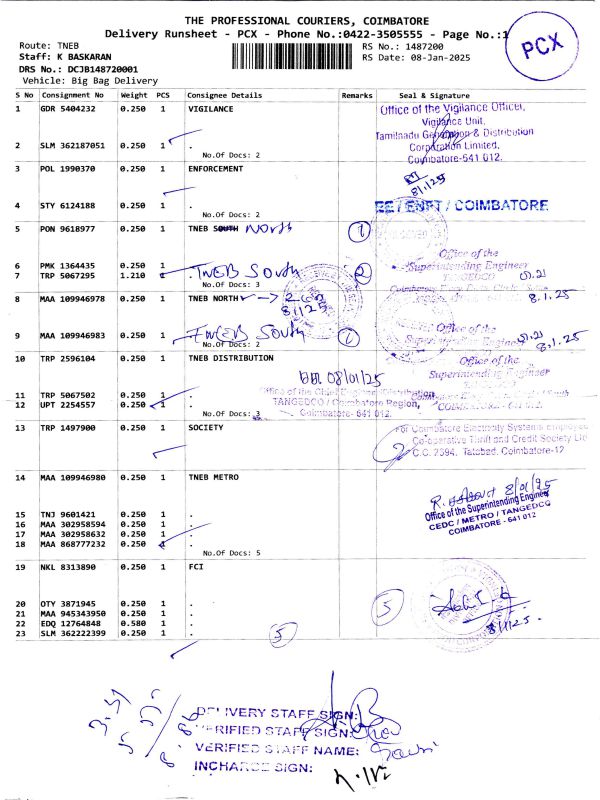 THE PROFESSIONAL COURIERS, COIMBATORE
Delivery Runsheet - PCX - Phone No.:0422-3505555 - Page No.:1
PCX
Route: TNEB
RS No.: 1487200
Staff: K BASKARAN
RS Date: 08-Jan-2025
DRS No.: DCJB148720001
Vehicle: Big Bag Delivery
S No Consignment No Weight PCS Consignee Details Remarks Seal & Signature
1 GDR 5404232 0.250 1 VIGILANCE
Office of the Vigilance Officer,
Vigilance Unit,
Tamilnadu Generation & Distribution
Corporation Limited,
Coimbatore-641 012.
2 SLM 362187051 0.250 1 .
No.Of Docs: 2
3 POL 1990370 0.250 1 ENFORCEMENT
8/1/25
4 STY 6124188 0.250 1 .
No.Of Docs: 2
EE / ENFT / COIMBATORE
5 PON 9618977 0.250 1 TNEB SOUTH North 1
6 PMK 1364435 0.250 1 .
7 TRP 5067295 1.210 1 TNEB South 2
No.Of Docs: 3
Office of the
Superintending Engineer
TANGEDCO
8.1.25
8 MAA 109946978 0.250 1 TNEB NORTH
8/1/25
9 MAA 109946983 0.250 1 TNEB South 1
No.Of Docs: 2
Office of the
Superintending Engineer
8.1.25
10 TRP 2596104 0.250 1 TNEB DISTRIBUTION
08/01/25
Office of the
Superintending Engineer
TANGEDCO
11 TRP 5067502 0.250 1 .
12 UPT 2254557 0.250 1 .
No.Of Docs: 3
Office of the Chief Engineer/Distribution
TANGEDCO / Coimbatore Region,
Coimbatore- 641 012.
COIMBATORE -
13 TRP 1497900 0.250 1 SOCIETY
For Coimbatore Electricity Systems Employees
Co-operative Thrift and Credit Society Ltd
C.C. 2394, Tatabad, Coimbatore-12
14 MAA 109946980 0.250 1 TNEB METRO
8/01/25
Office of the Superintending Engineer
CEDC / METRO / TANGEDCO
COIMBATORE - 641 012
15 TNJ 9601421 0.250 1 .
16 MAA 302958594 0.250 1 .
17 MAA 302958632 0.250 1 .
18 MAA 868777232 0.250 1 .
No.Of Docs: 5
19 NKL 8313890 0.250 1 FCI
20 OTY 3871945 0.250 1 .
21 MAA 945343950 0.250 1 .
22 EDQ 12764848 0.580 1 .
23 SLM 362222399 0.250 1 .
5
5
8/1/25
DELIVERY STAFF SIGN:
VERIFIED STAFF SIGN:
VERIFIED STAFF NAME:
INCHARGE SIGN: